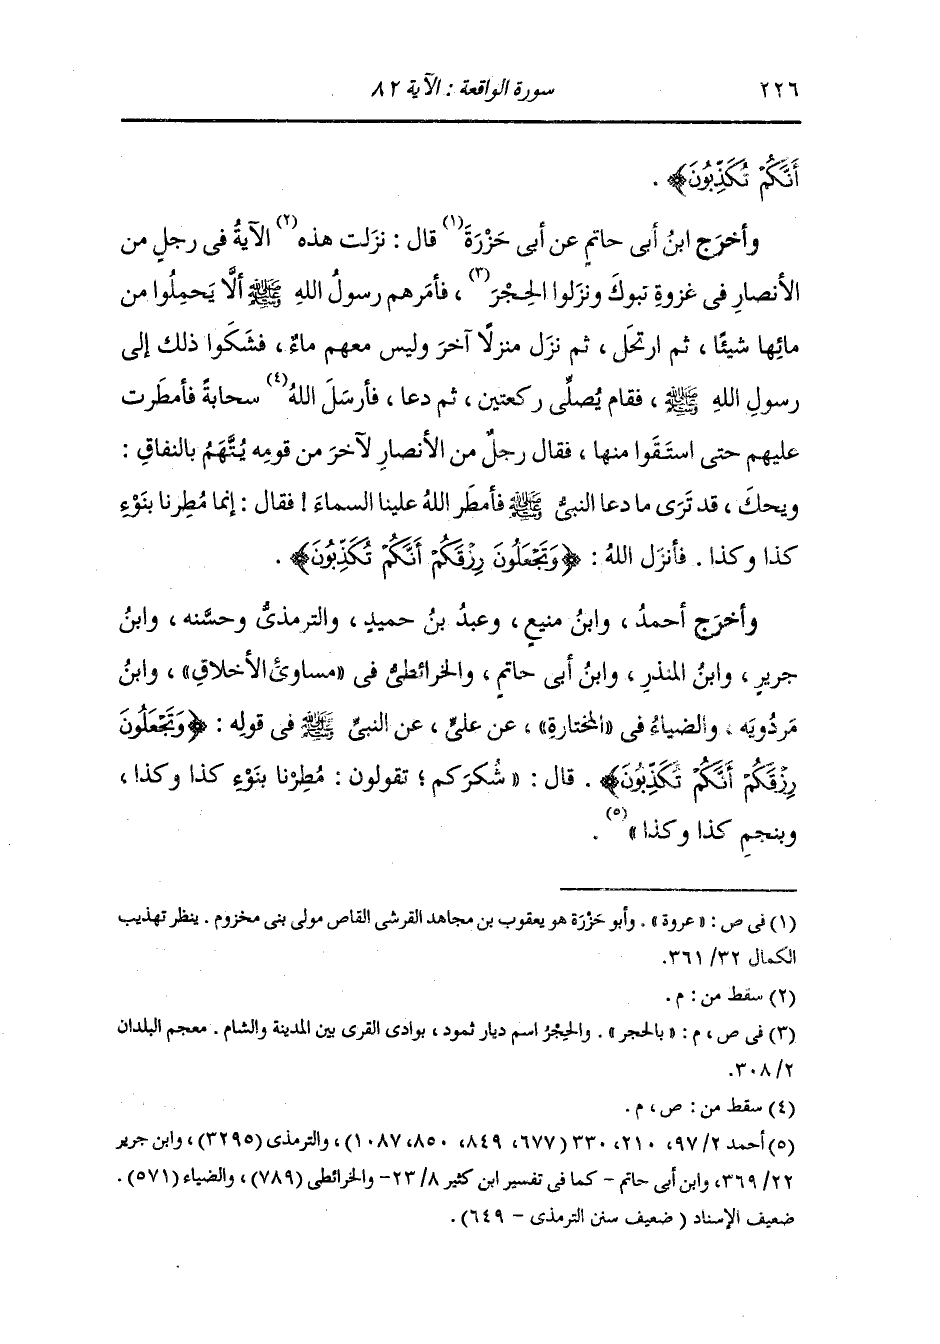 ٢٢٦ سورة الواقعة : الآية ٨٢
أَنَّكُمْ تُكَذِّبُونَ﴾ .
وأخرَج ابنُ أبى حاتمٍ عن أبى حَزْرَةَ(١) قال : نزَلت هذه(٢) الآيةُ فى رجلٍ من
الأنصارِ فى غزوةِ تبوكَ ونزَلوا الحِجْرَ(٣) ، فأمَرهم رسولُ اللهِ ﷺ ألَّا يَحمِلُوا من
مائِها شيئًا ، ثم ارتحَل ، ثم نزَل منزلًا آخرَ وليس معهم ماءٌ ، فشَكَوا ذلك إلى
رسولِ اللهِ ﷺ ، فقام يُصلِّى ركعتين ، ثم دعا ، فأرسَلَ اللهُ(٤) سحابةً فأمطَرت
عليهم حتى استَقَوا منها ، فقال رجلٌ من الأنصارِ لآخرَ من قومِه يُتَّهَمُ بالنفاقِ :
ويحكَ ، قد تَرَى ما دعا النبىُّ ﷺ فأمطَر اللهُ علينا السماءَ ! فقال : إنما مُطِرنا بنَوْءِ
كذا وكذا . فأنزَل اللهُ : ﴿وَتَجْعَلُونَ رِزْقَكُمْ أَنَّكُمْ تُكَذِّبُونَ﴾ .
وأخرَج أحمدُ ، وابنُ منيعٍ ، وعبدُ بنُ حميدٍ ، والترمذىُّ وحسَّنه ، وابنُ
جريرٍ ، وابنُ المنذرِ ، وابنُ أبى حاتمٍ ، والخرائطىُّ فى «مساوئِ الأخلاقِ» ، وابنُ
مَردُويَه ، والضياءُ فى «المختارةِ» ، عن علىٍّ ، عن النبىِّ ﷺ فى قولِه : ﴿وَتَجْعَلُونَ
رِزْقَكُمْ أَنَّكُمْ تُكَذِّبُونَ﴾ . قال : « شُكرَكم ؛ تقولون : مُطِرْنا بنَوْءِ كذا وكذا ،
وبنجمِ كذا وكذا »(٥) .
(١) فى ص : « عروة » . وأبو حَزْرَة هو يعقوب بن مجاهد القرشى القاص مولى بنى مخزوم . ينظر تهذيب
الكمال ٣٢/ ٣٦١.
(٢) سقط من : م .
(٣) فى ص ، م : « بالحجر » . والحِجْرُ اسم ديار ثمود ، بوادى القرى بين المدينة والشام . معجم البلدان
٢/ ٣٠٨.
(٤) سقط من : ص ، م .
(٥) أحمد ٢/ ٩٧، ٢١٠، ٣٣٠ (٦٧٧، ٨٤٩، ٨٥٠، ١٠٨٧) ، والترمذى (٣٢٩٥) ، وابن جرير
٢٢/ ٣٦٩، وابن أبى حاتم - كما فى تفسير ابن كثير ٨/ ٢٣- والخرائطى (٧٨٩) ، والضياء (٥٧١) .
ضعيف الإسناد ( ضعيف سنن الترمذى - ٦٤٩) .